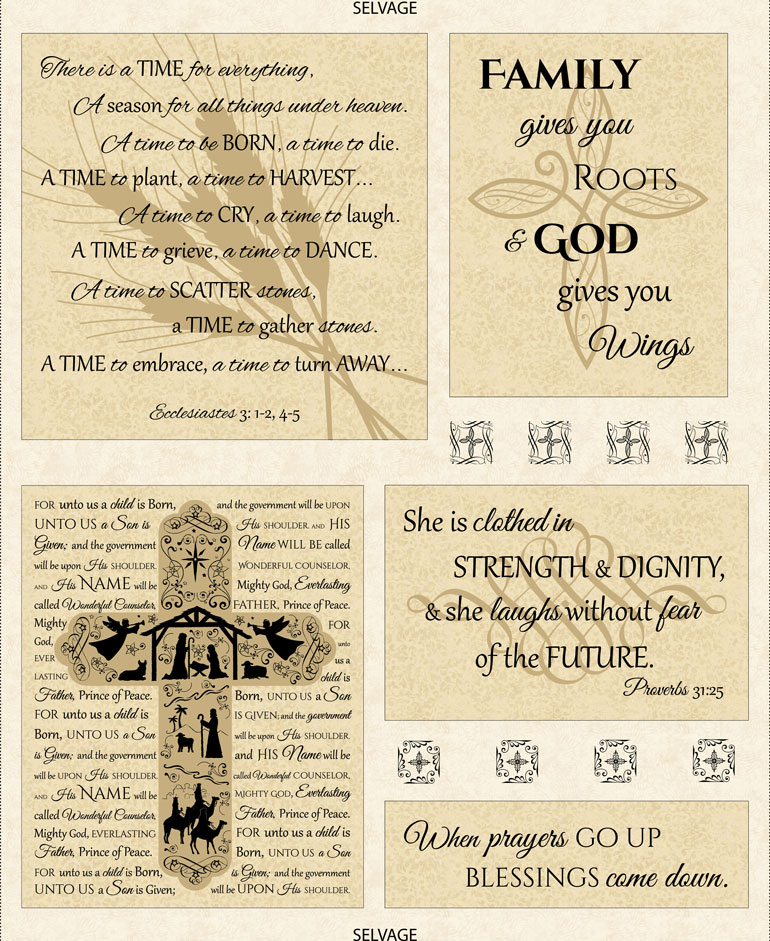 SELVAGE
There is a TIME for everything,
A season for all things under heaven.
A time to be BORN, a time to die.
A TIME to plant, a time to HARVEST...
A time to CRY, a time to laugh.
A TIME to grieve, a time to DANCE.
A time to SCATTER stones,
a TIME to gather stones.
A TIME to embrace, a time to turn AWAY...
Ecclesiastes 3: 1-2, 4-5
FAMILY
gives you
ROOTS
& GOD
gives you
Wings
FOR unto us a child is Born,
UNTO US a Son is
Given; and the government
will be upon His SHOULDER.
AND His NAME will be
called Wonderful Counselor,
Mighty
God,
EVER
LASTING
Father, Prince of Peace.
FOR unto us a child is
Born, UNTO US a Son
is Given; and the government
will be UPON His SHOULDER.
AND His NAME will be
called Wonderful Counselor,
Mighty God, EVERLASTING
Father, Prince of Peace.
FOR unto us a child is Born,
UNTO US a Son is Given;
and the government will be UPON
His SHOULDER. AND HIS
Name WILL BE called
WONDERFUL COUNSELOR,
Mighty God, Everlasting
FATHER, Prince of Peace.
FOR
unto
us a
child is
Born, UNTO US a Son
IS GIVEN; and the government
will be upon His SHOULDER.
and HIS Name will be
called Wonderful COUNSELOR,
MIGHTY GOD, Everlasting
Father, Prince of Peace.
FOR unto us a child is
Born, UNTO US a Son
is Given; and the government
will be UPON His SHOULDER.
She is clothed in
STRENGTH & DIGNITY,
& she laughs without fear
of the FUTURE.
Proverbs 31:25
When prayers GO UP
BLESSINGS come down.
SELVAGE